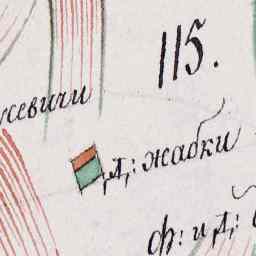 115.
усевичи
д: жабки
ф: и д: